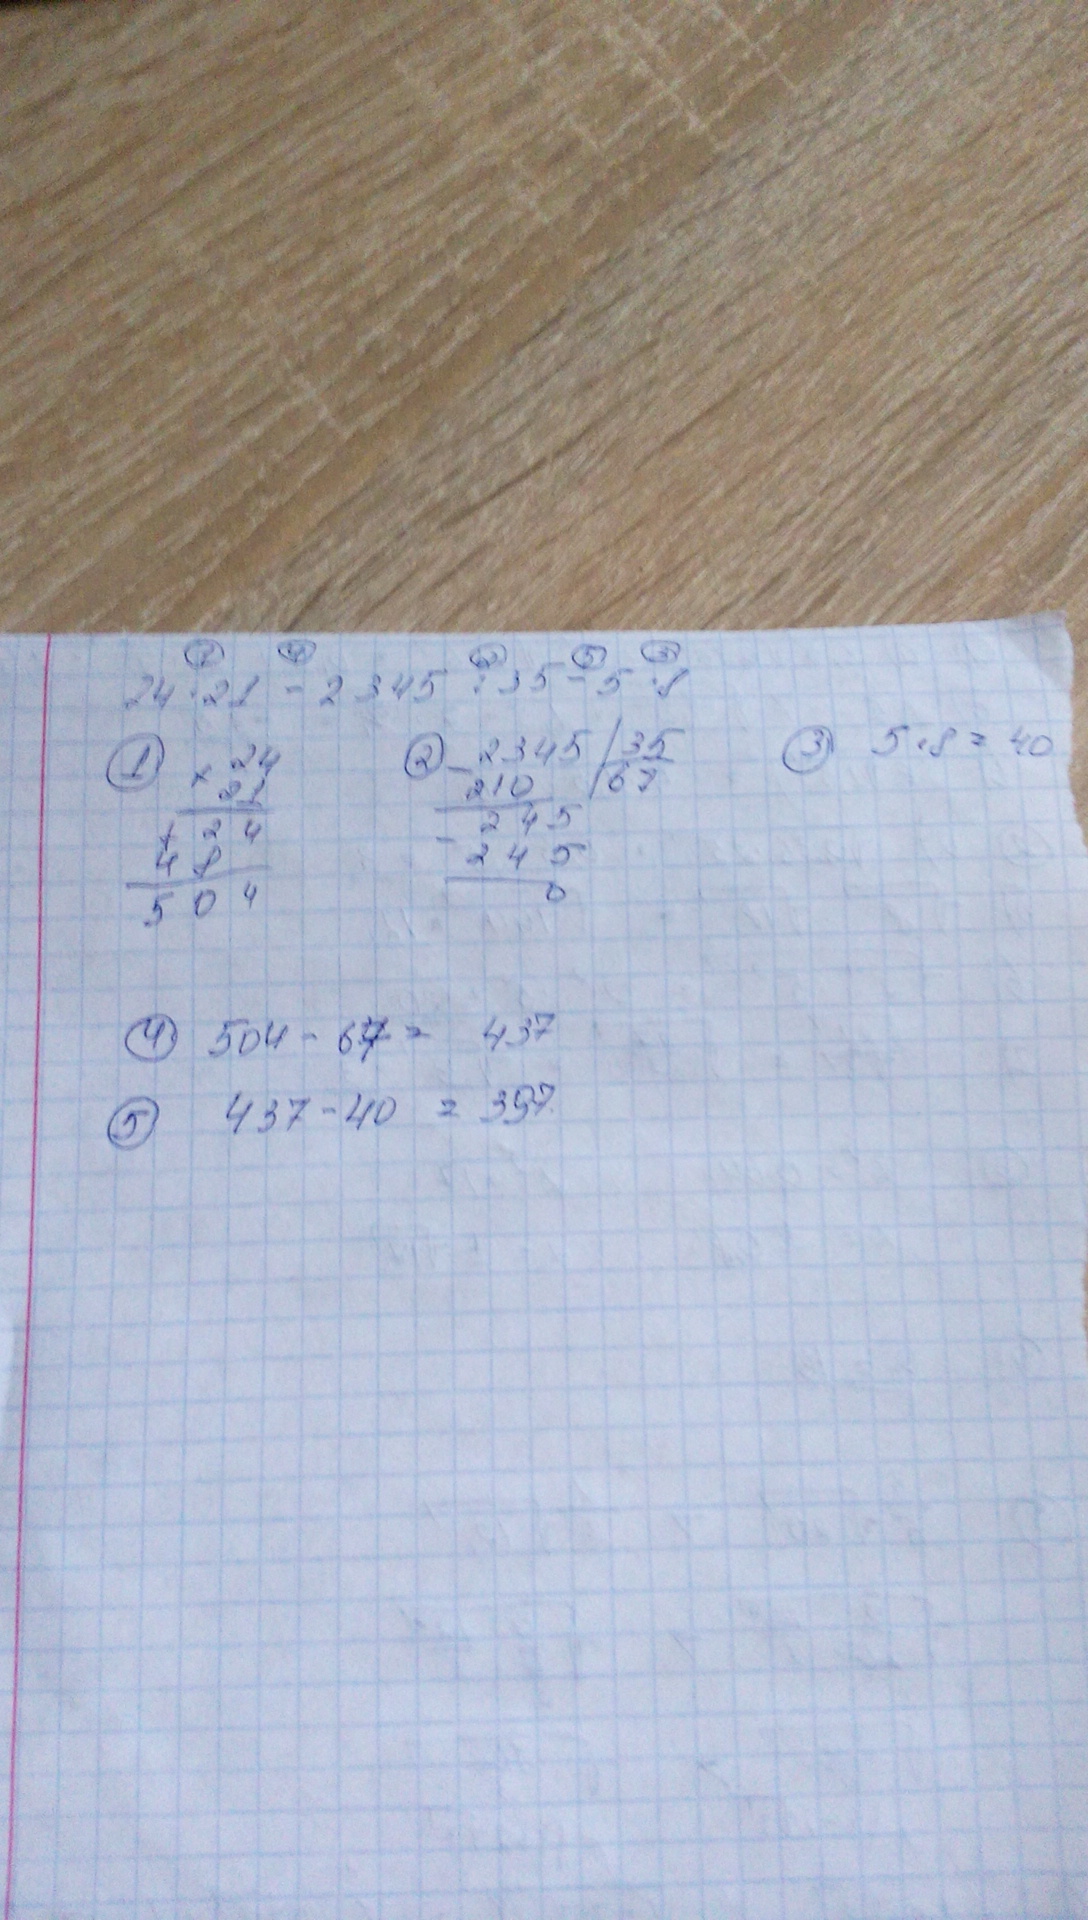 ① ④ ② ⑤ ③
24 · 21 - 2345 : 35 - 5 · 8
① × 24 ② - 2345 | 35 ③ 5 · 8 = 40
21 210 67
+ 24 - 245
48 245
504 0
④ 504 - 67 = 437
⑤ 437 - 40 = 397